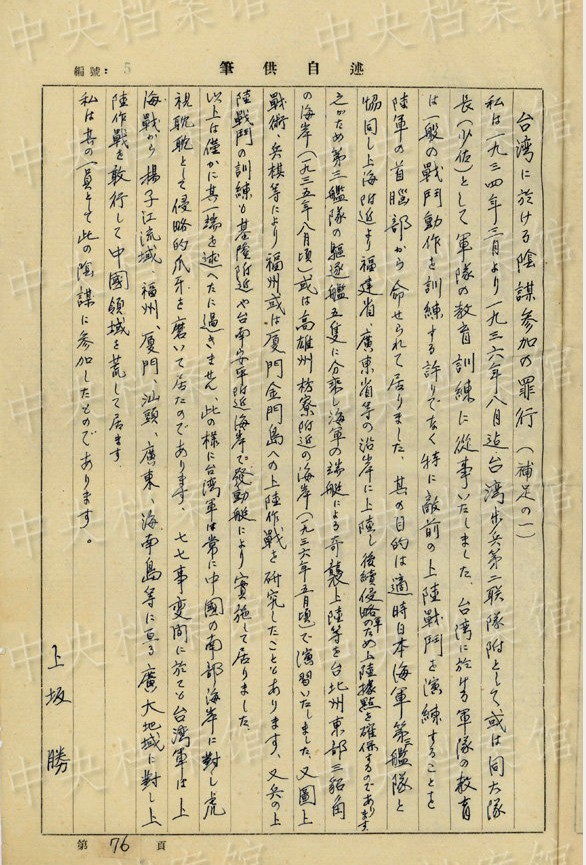 編號：5
筆供自述
台湾に於ける陰謀参加の罪行（補足の一）
私は一九三四年三月より一九三六年八月迠台湾歩兵第二联隊附として或は同大隊
長（少佐）として軍隊の教育訓練に從事いたしました。台湾に於ける軍隊の教育
は一般の戦鬥動作を訓練する許りでなく特に敵前の上陸戦鬥を演練することを
陸軍の首腦部から命せられて居りました。其の目的は適時日本海軍第 艦隊と
協同し上海附近より福建省、廣東省等の沿岸に上陸し後続侵略軍のため上陸據點を確保するのであります。
之がため第三艦隊の駆逐艦五隻に分乘し海軍の端艇による奇襲上陸等を台北州東部三貂角
の海岸（一九三五年八月頃）或は高雄州枋寮附近の海岸（一九三六年五月頃）で演習いたしました。又圖上
戦術、兵棋等により福州或は厦門金門島への上陸作戦を研究したこともあります。又兵の上
陸戦鬥の訓練も基隆附近や台南安平附近海岸で發動艇により實施して居りました。
以上は僅かに其一端を述へたに過きません、此の様に台湾軍は常に中國の南部海岸に對し虎
視眈眈として侵略的爪牙を磨いて居たのであります、七七事変間に於ても台湾軍は上
海戦から揚子江流域、福州、厦門、汕頭、廣東、海南島等に亘る廣大地域に對し上
陸作戦を敢行して中國領域を荒して居ます。
私は其の一員として此の陰謀に参加したものであります。
上坂 勝
第 76 頁
中央档案馆